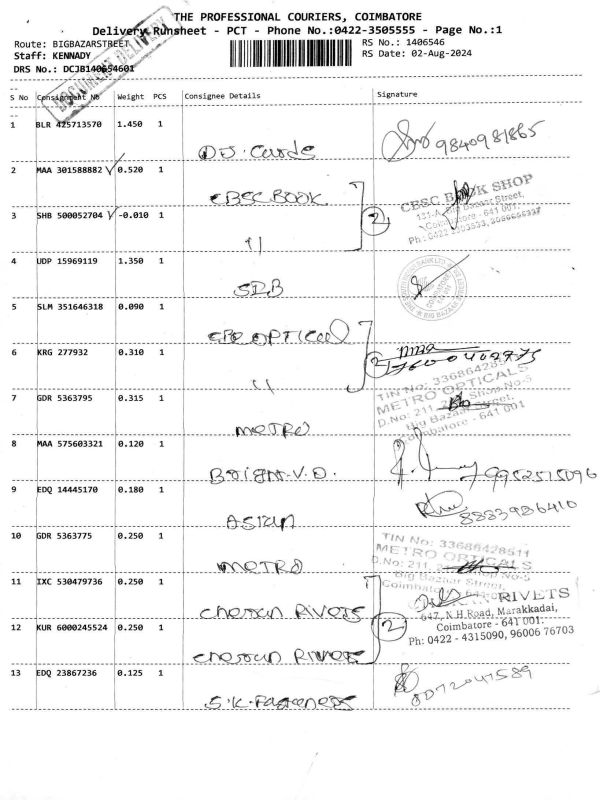 THE PROFESSIONAL COURIERS, COIMBATORE
Delivery Runsheet - PCT - Phone No.:0422-3505555 - Page No.:1
Route: BIGBAZARSTREET
RS No.: 1406546
Staff: KENNADY
RS Date: 02-Aug-2024
DRS No.: DCJB140654601
DOCUMENT DELIVERY
S No Consignment No Weight PCS Consignee Details Signature
1 BLR 425713570 1.450 1
D.J. Cards
9840981865
2 MAA 301588882 ✓ 0.520 1
CBSC BOOK
CBSC BOOK SHOP
131-A, Big Bazaar Street,
Coimbatore - 641 001.
3 SHB 500052704 ✓ -0.010 1
"
2
4 UDP 15969119 1.350 1
5 SLM 351646318 0.090 1
OPTICAL
6 KRG 277932 0.310 1
"
2
7 GDR 5363795 0.315 1
METRO
METRO OPTICALS
D.No: 211,
Big Bazaar Street,
Coimbatore - 641 001
8 MAA 575603321 0.120 1
Bright.V.D.
9952515096
9 EDQ 14445170 0.180 1
ASIAN
8883986410
10 GDR 5363775 0.250 1
METRO
TIN No: 33686428511
METRO OPTICALS
D.No: 211,
Big Bazaar Street,
Coimbatore
11 IXC 530479736 0.250 1
Cheran RIVETS
RIVETS
647, N.H.Road, Marakkadai,
Coimbatore - 641 001.
Ph: 0422 - 4315090, 96006 76703
12 KUR 6000245524 0.250 1
Cheran RIVETS
2
13 EDQ 23867236 0.125 1
S.K. Fasteners